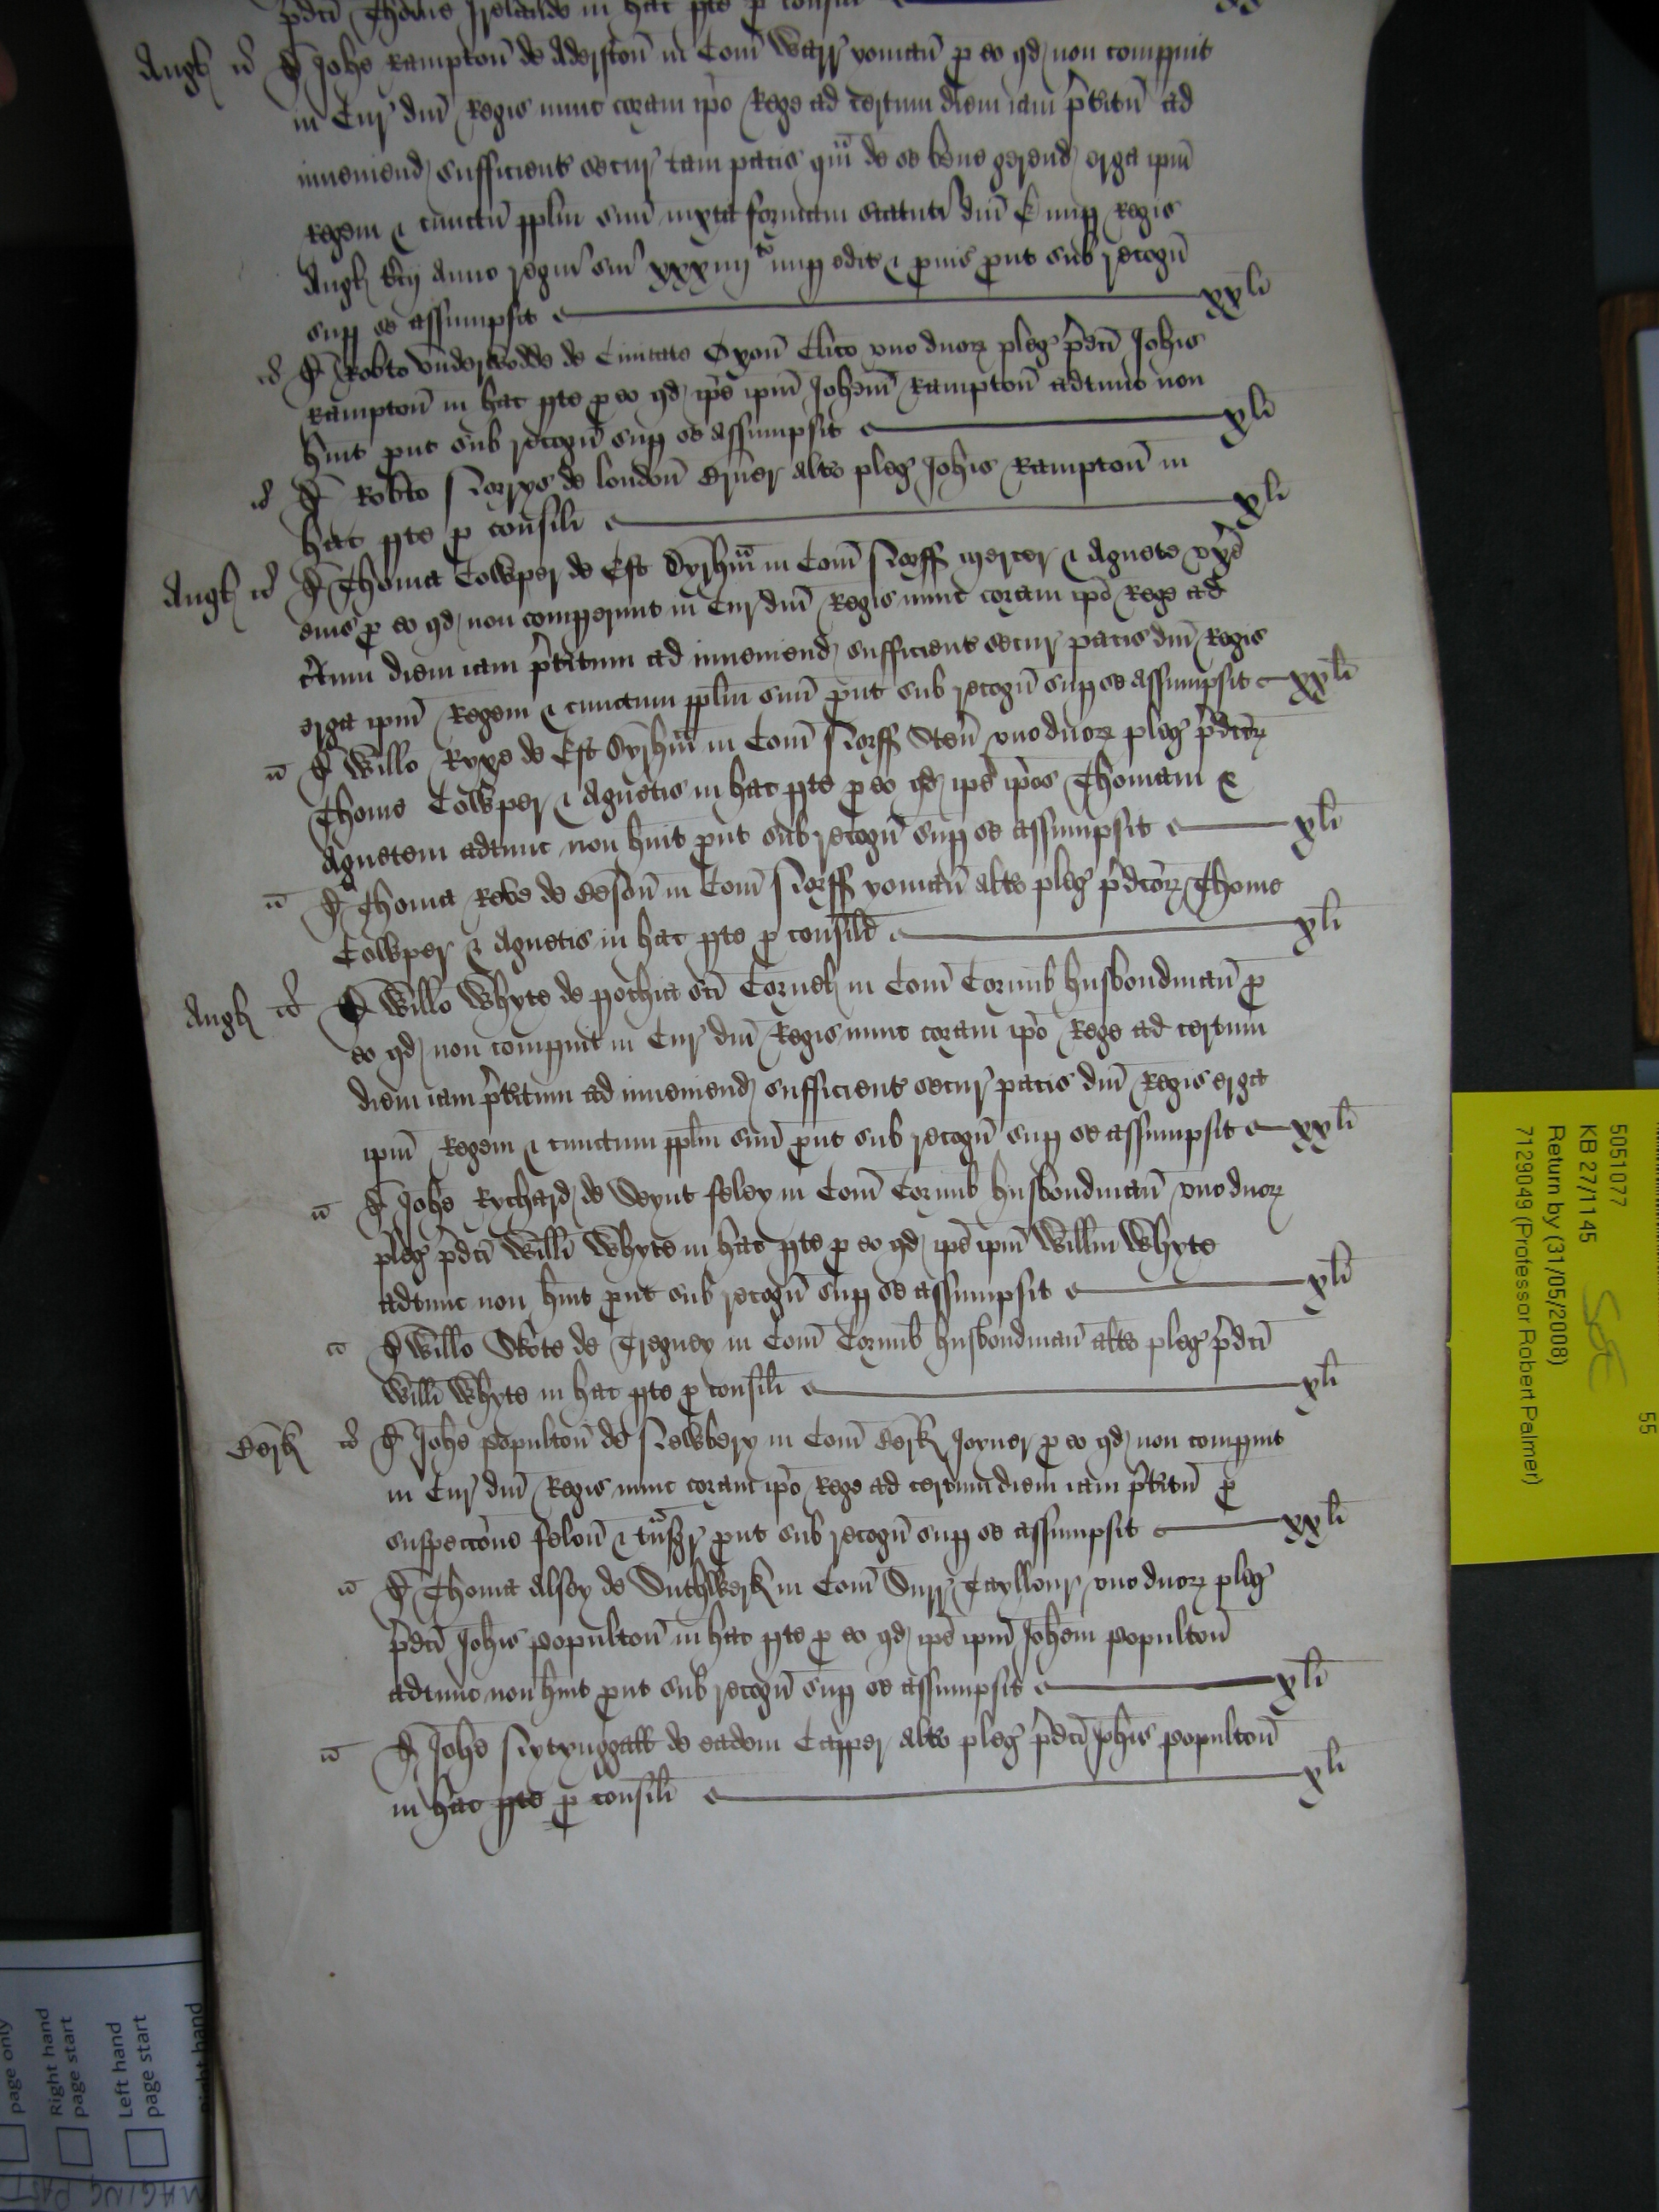 p̄dc̄i Thome Irelande in hac pte p consiĺi
Angł id̄ D̄ Joh̄e Rampton̄ de Aderston̄ in Com̄ Warr yoman̄ p eo qd non compuit
in Cur dn̄i Regis nunc coram ip̄o Rege ad certum diem iam p̄terit̄u ad
inueniend sufficient̄ secur tam pacis qm̄ de se bene gerend erga ip̄m
Regem & cunctū pplm̄ suū iuxta formam statuti dn̄i E nup Regis
Angł tcij Anno regni sui xxxiiijto nup edit̄ & puis put sub recogn̄
sup se assumpsit xxli
id̄ D̄ Rob̄to Underwodde de Ciuitate Oxon̄ Cl̄ico vno duoꝝ pleg p̄dc̄i Joh̄is
Rampton̄ in hac pte p eo qd ip̄e ip̄m Joh̄em Rampton̄ adtunc non
h̄uit put sub recogn̄ sup se assumpsit xli
id̄ D̄ Rob̄to Norrys de london̄ alto pleg Joh̄is Rampton̄ in
hac pte p consiĺi xli
Angł id̄ D̄ Thoma Cowper de Est Dyrh̄m in Com̄ Norff mercer & Agnete vx̄e
eius p eo qd non comperunt in Cur dn̄i Regis nunc coram ip̄o Rege ad
c̄tum diem iam p̄teritum ad inueniend sufficient̄ secur pacis dn̄i Regis
erga ip̄m Regem & cunctum pplm̄ suū put sub recogn̄ sup se assumpsit xxli
id̄ D̄ Will̄o Ryxe de Est Dyrh̄m in Com̄ Norff vno duoꝝ pleg p̄dc̄oꝝ
Thome Cowper & Agnetis in hac pte p eo qd ip̄e ip̄os Thomam &
Agnetem adtunc non h̄uit put sub recogn̄ sup se assumpsit xli
id̄ D̄ Thoma Robe de Beson̄ in Com̄ Norff yoman̄ alto pleg p̄dc̄oꝝ Thome
Cowper & Agnetis in hac pte p consiĺi xli
Angł id̄ D̄ Will̄o Whyte de pochia sc̄i Cornel in Com̄ Cornub husbondman̄ p
eo qd non compuit in Cur dn̄i Regis nunc coram ip̄o Rege ad certum
diem iam p̄teritum ad inueniend sufficient̄ secur pacis dn̄i Regis erga
ip̄m Regem & cunctum pplm̄ suū put sub recogn̄ sup se assumpsit xxli
id̄ D̄ Joh̄e Rychard de Seynt feley in Com̄ Cornub husbondman̄ vno duoꝝ
pleg p̄dc̄i Will̄i Whyte in hac pte p eo qd ip̄e ip̄m Will̄m Whyte
adtunc non h̄uit put sub recogn̄ sup se assumpsit xli
id̄ D̄ Will̄o Skote de Tregney in Com̄ Cornub husbondman̄ alto pleg p̄dc̄i
Will̄i Whyte in hac pte p consiĺi xli
Berk id̄ D̄ Joh̄e Populton̄ de Newbery in Com̄ Berk Joyner p eo qd non compuit
in Cur dn̄i Regis nunc coram ip̄o Rege ad certum diem iam p̄terit̄u p
suspecc̄one felon̄ & tn̄sgr put sub recogn̄ sup se assumpsit xxli
id̄ D̄ Thoma Alsey de Suthwerk in Com̄ Surr Tayllour vno duoꝝ pleg
p̄dc̄i Joh̄is Populton̄ in hac pte p eo qd ip̄e ip̄m Joh̄em Populton̄
adtunc non h̄uit put sub recogn̄ sup se assumpsit xli
id̄ D̄ Joh̄e Nytynggall de eadem Capper alto pleg p̄dc̄i Joh̄is Populton̄
in hac pte p consiĺi xli
55
5051077
KB 27/1145
Return by (31/05/2008)
7129049 (Professor Robert Palmer)
page only
Right hand
page start
Left hand
page start
Right hand